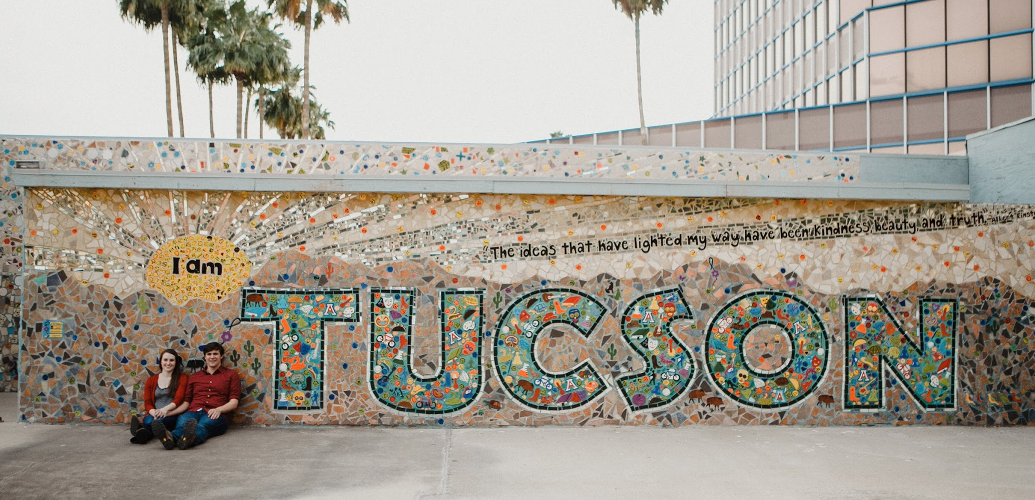 The ideas that have lighted my way have been kindness, beauty and truth.
I am
TUCSON